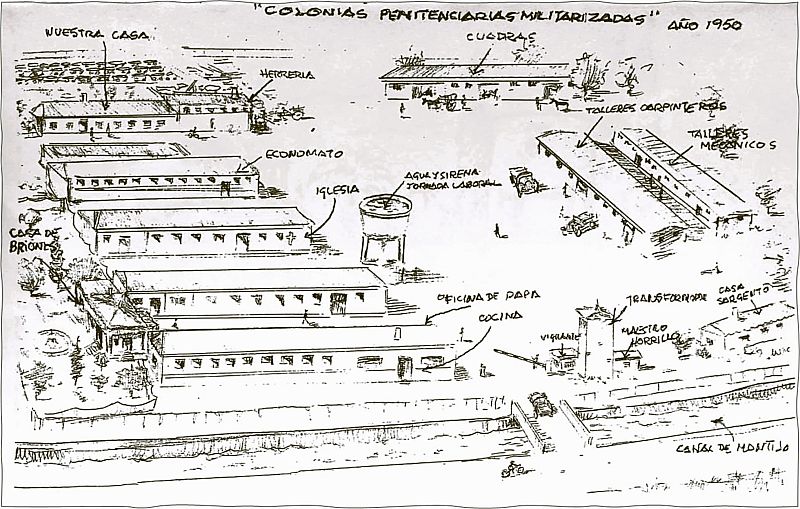 "COLONIAS PENITENCIARIAS MILITARIZADAS" AÑO 1950
NUESTRA CASA
CUADRAS
HERRERIA
TALLERES CARPINTEROS
TALLERES
MECANICOS
ECONOMATO
AGUA Y SIRENA
JORNADA LABORAL
IGLESIA
CASA DE
BRIONES
OFICINA DE PAPA
COCINA
TRANSFORMADOR
CASA
SARGENTO
VIGILANTE
MAESTRO
MORRILLO
CANAL DE MONTIJO